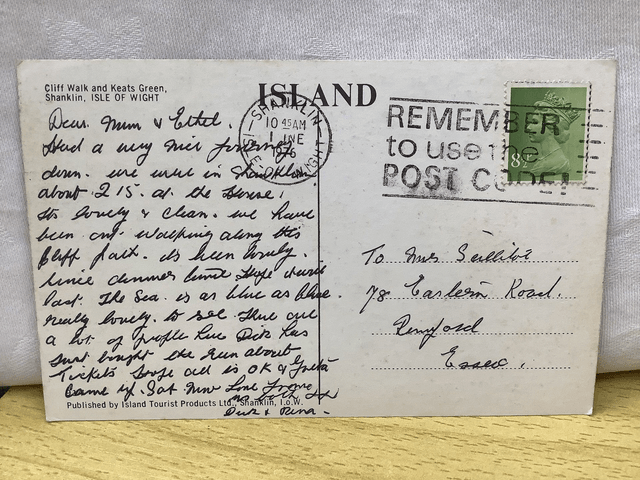 Cliff Walk and Keats Green,
Shanklin, ISLE OF WIGHT
ISLAND
SHANKLIN
10 45 AM
1 JNE
1976
REMEMBER
to use the
POST CODE!
8½P
Dear Mum & Ethel.
Had a very nice journey
down. we were in Shanklin
about 2 15. at the House.
Its lovely & clean. we have
been out walking along this
Cliff path. its been lovely.
since dinner time hope it
last. The Sea is as blue as blue.
really lovely. to see. There are
a lot of people here Dick has
just bought the Sun about
Tickets hope all is OK &
Came up. Sat now Love from
us both xx
Dick & Rena.
Published by Island Tourist Products Ltd., Shanklin, I.o.W.
To Mrs
78 Eastern Road.
Romford
Essex.